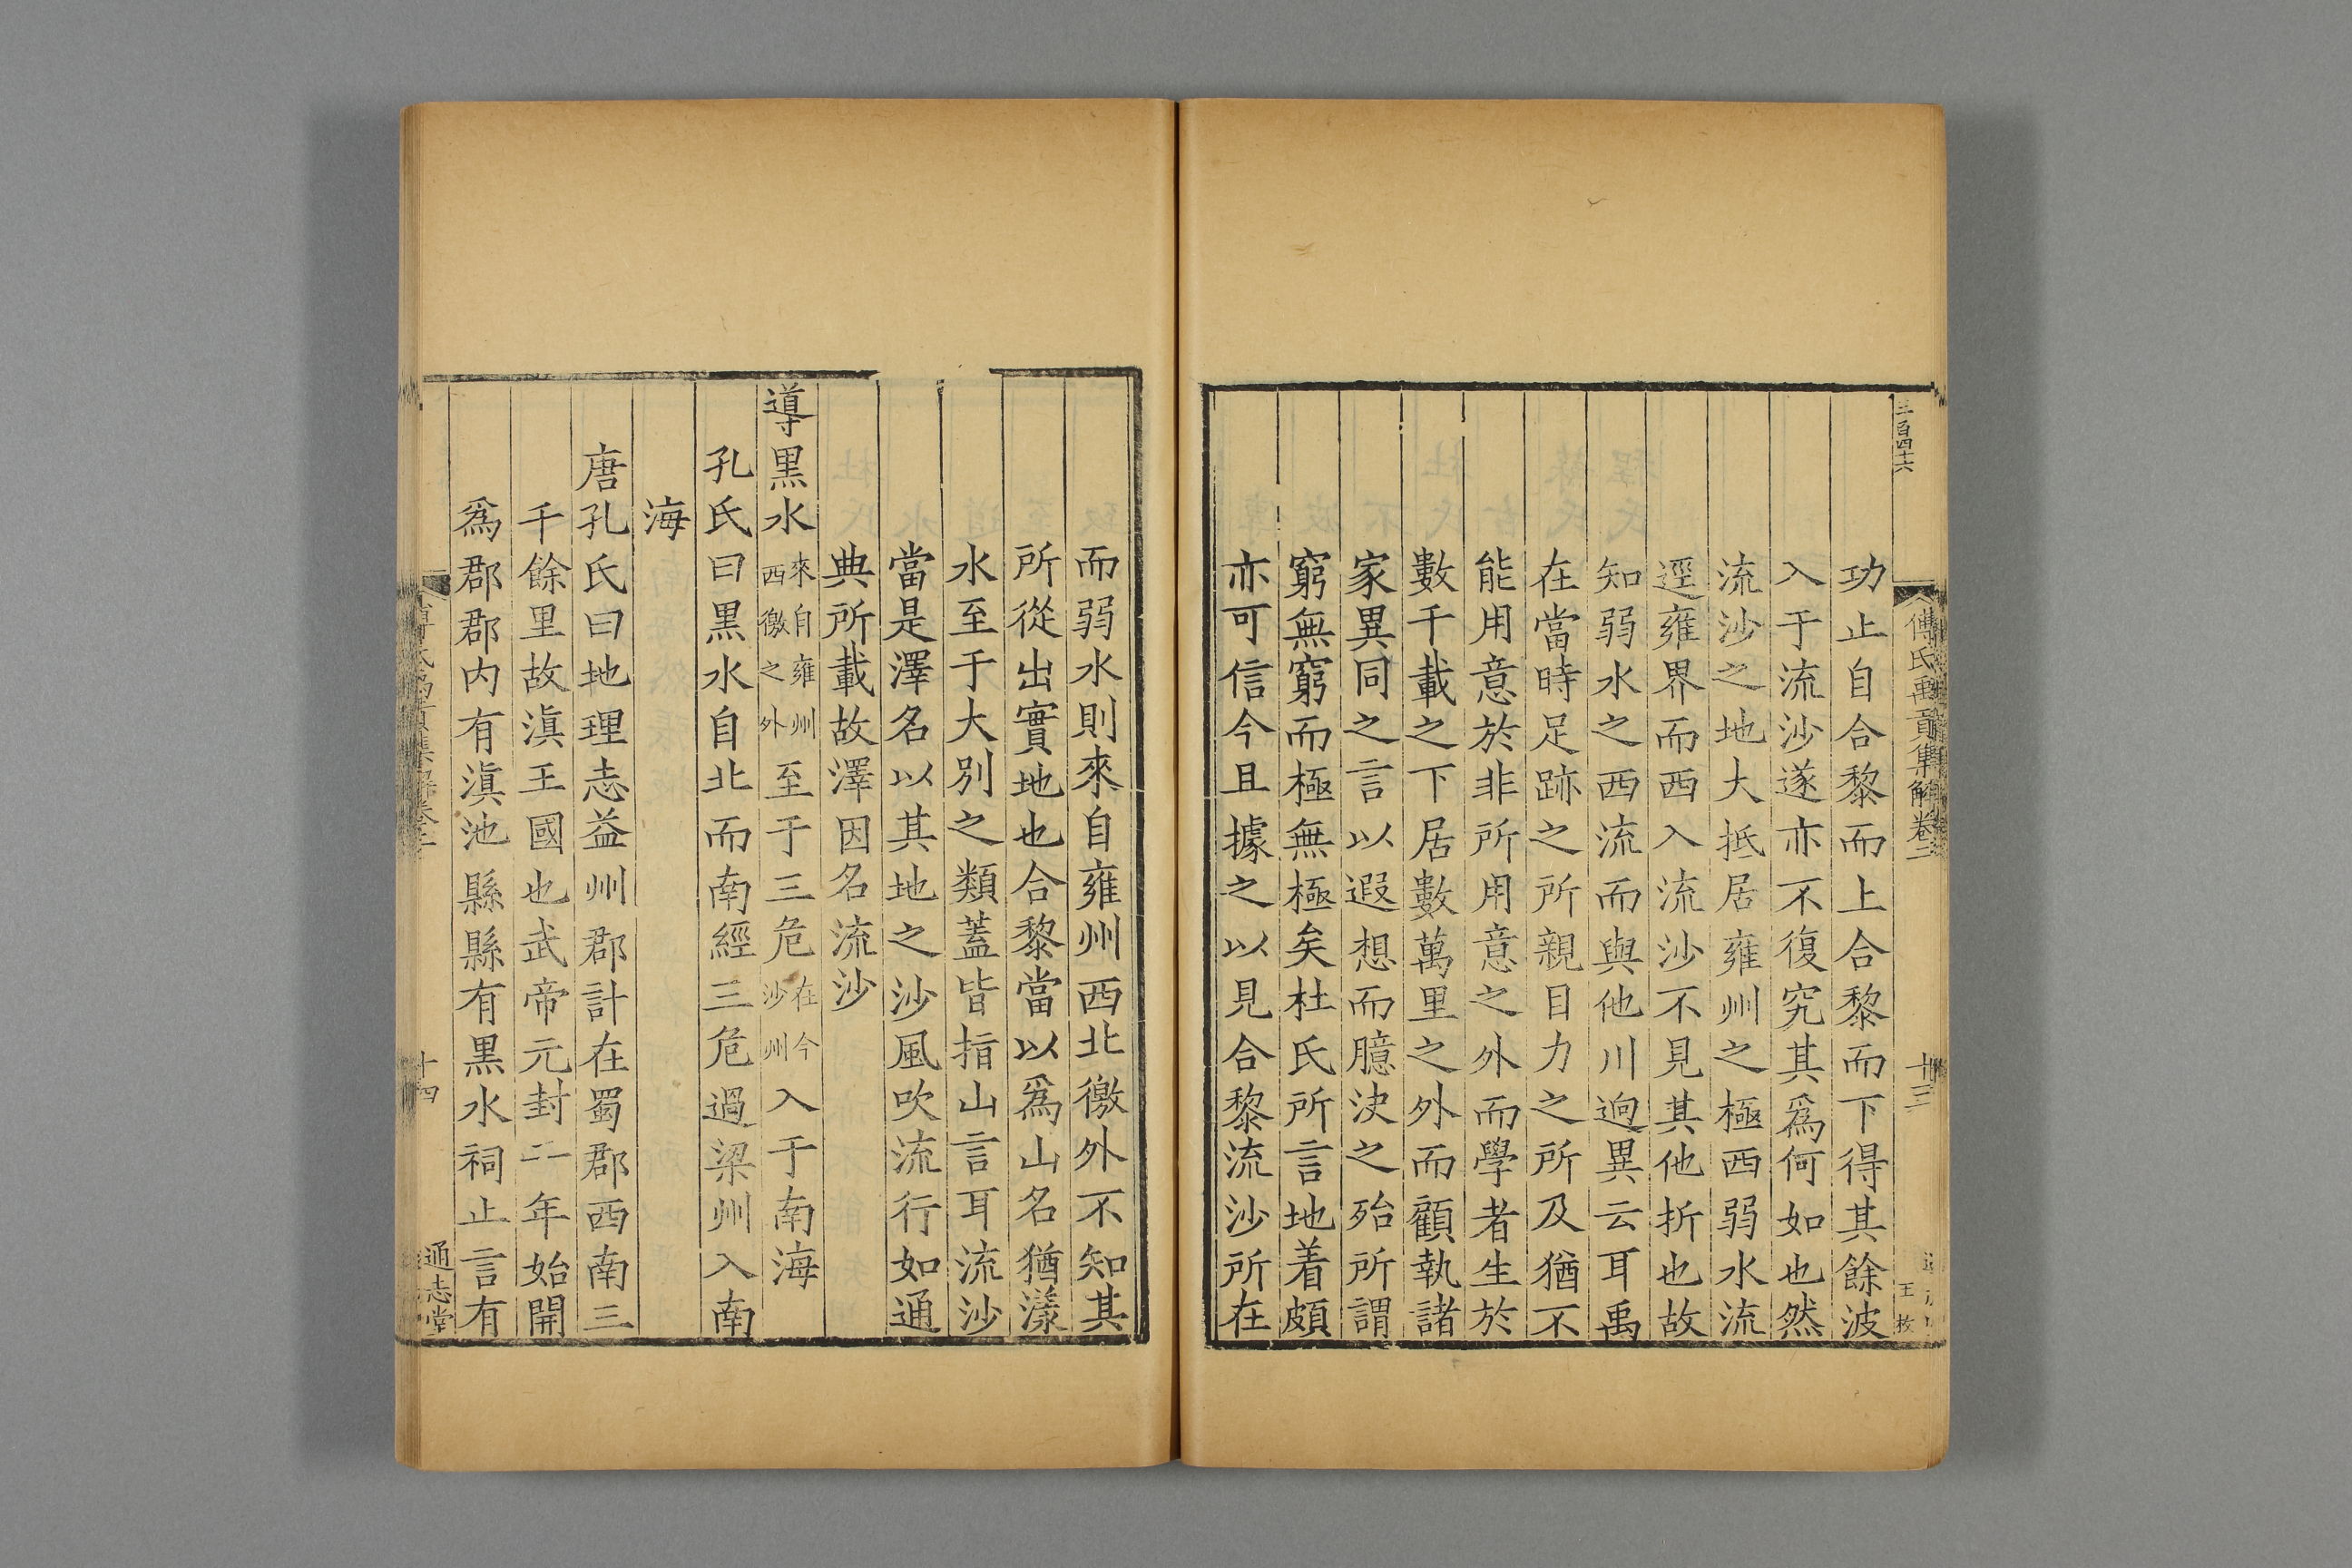 三百四十六
傅氏禹貢集解卷二
十三
王枚
功止自合黎而上合黎而下得其餘波
入于流沙遂亦不復究其爲何如也然
流沙之地大抵居雍州之極西弱水流
逕雍界而西入流沙不見其他折也故
知弱水之西流而與他川逈異云耳禹
在當時足跡之所親目力之所及猶不
能用意於非所用意之外而學者生於
數千載之下居數萬里之外而顧執諸
家異同之言以遐想而臆決之殆所謂
窮無窮而極無極矣杜氏所言地着頗
亦可信今且據之以見合黎流沙所在
而弱水則來自雍州西北徼外不知其
所從出實地也合黎當以爲山名猶漾
水至于大別之類蓋皆指山言耳流沙
當是澤名以其地之沙風吹流行如通
典所載故澤因名流沙
導黑水來自雍州西徼之外至于三危在今沙州入于南海
孔氏曰黑水自北而南經三危過梁州入南
海
唐孔氏曰地理志益州郡計在蜀郡西南三
千餘里故滇王國也武帝元封二年始開
爲郡郡内有滇池縣縣有黑水祠止言有
十四
通志堂